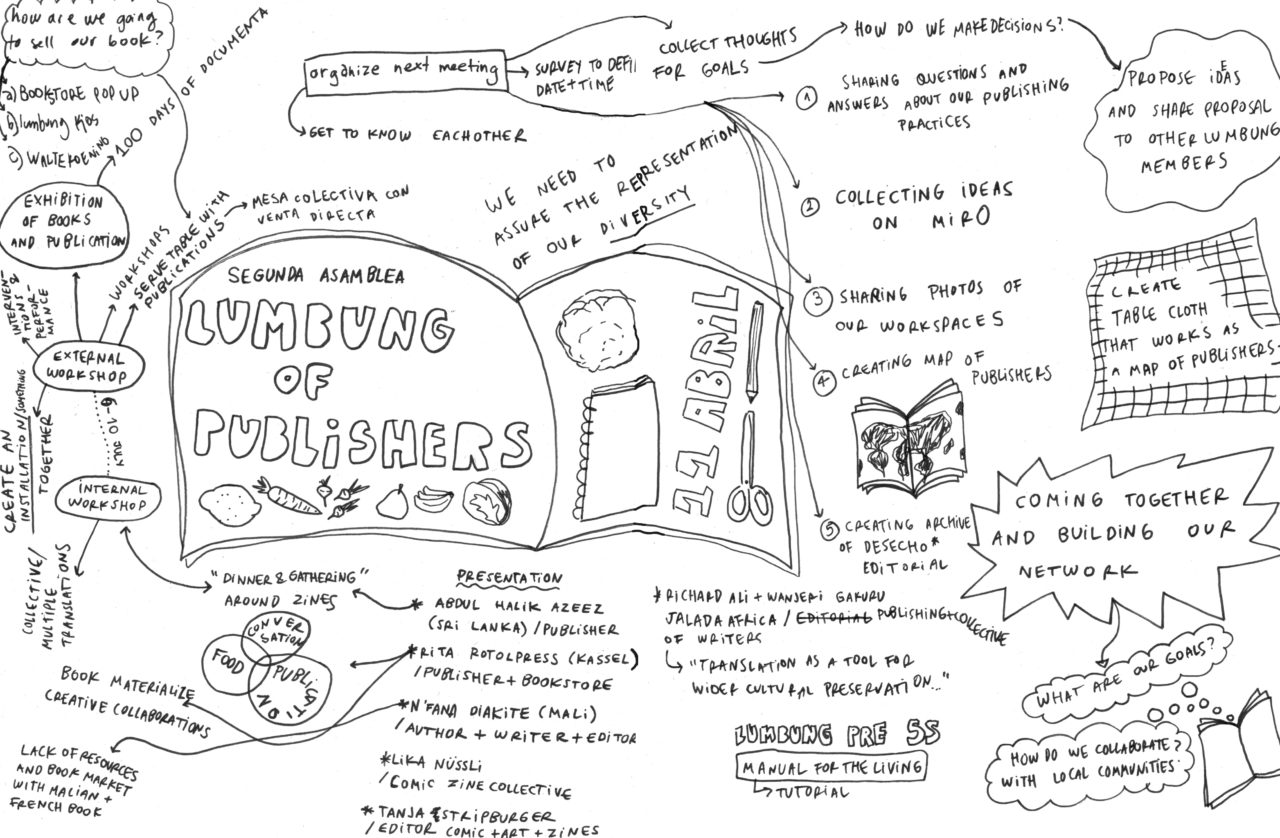 how are we going
to sell our book?
a) BOOKSTORE POP UP
b) lumbung kios
c) WALTEKOENING
100 DAYS OF DOCUMENTA
EXHIBITION
OF BOOKS
AND PUBLICATION
WORKSHOPS
SERVE TABLE WITH
PUBLICATIONS
MESA COLECTIVA CON
VENTA DIRECTA
INTERVEN-
TIONS &
PERFOR-
MANCE
EXTERNAL
WORKSHOP
CREATE AN
INSTALLATION/SOMETHING
TOGETHER
6-10 JULY
INTERNAL
WORKSHOP
COLLECTIVE/
MULTIPLE
TRANSLATIONS
organize next meeting
SURVEY TO DEFII
DATE+TIME
GET TO KNOW EACHOTHER
COLLECT THOUGHTS
FOR GOALS
HOW DO WE MAKE DECISIONS?
PROPOSE IDEAS
AND SHARE PROPOSAL
TO OTHER LUMBUNG
MEMBERS
WE NEED TO
ASSURE THE REPRESENTATION
OF OUR DIVERSITY
SEGUNDA ASAMBLEA
LUMBUNG
OF
PUBLISHERS
11 ABRIL
1 SHARING QUESTIONS AND
ANSWERS ABOUT OUR PUBLISHING
PRACTICES
2 COLLECTING IDEAS
ON MIRO
3 SHARING PHOTOS OF
OUR WORKSPACES
4 CREATING MAP OF
PUBLISHERS
5 CREATING ARCHIVE
OF DESECHO*
EDITORIAL
CREATE
TABLE CLOTH
THAT WORKS AS
A MAP OF PUBLISHERS
COMING TOGETHER
AND BUILDING OUR
NETWORK
WHAT ARE OUR GOALS?
HOW DO WE COLLABORATE?
WITH LOCAL COMMUNITIES
"DINNER & GATHERING"
AROUND ZINES
CONVER
SATION
FOOD
PUBLICATION
BOOK MATERIALIZE
CREATIVE COLLABORATIONS
LACK OF RESOURCES
AND BOOK MARKET
WITH MALIAN +
FRENCH BOOK
PRESENTATION
* ABDUL HALIK AZEEZ
(SRI LANKA) / PUBLISHER
* RITA ROTOLPRESS (KASSEL)
/ PUBLISHER + BOOKSTORE
* N'FANA DIAKITE (MALI)
/ AUTHOR + WRITER + EDITOR
* LIKA NÜSSLI
/ COMIC ZINE COLLECTIVE
* TANJA STRIPBURGER
/ EDITOR COMIC + ART + ZINES
* RICHARD ALI + WANJERI GAKURU
JALADA AFRICA / EDITORIAL PUBLISHING+COLLECTIVE
OF WRITERS
"TRANSLATION AS A TOOL FOR
WIDER CULTURAL PRESERVATION..."
LUMBUNG PRE SS
MANUAL FOR THE LIVING
TUTORIAL